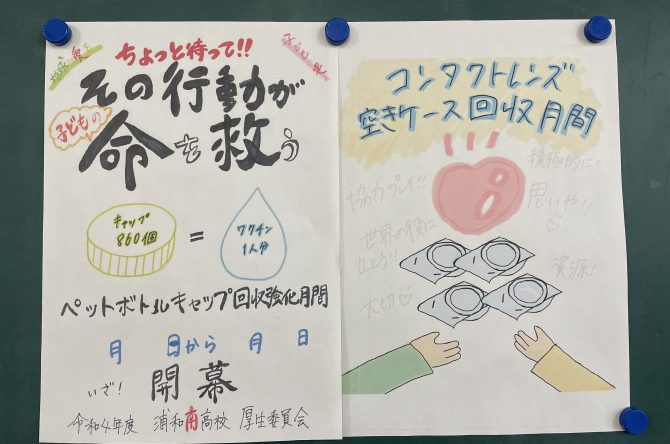 ちょっと待って!!
その行動が
子どもの
命を救う
キャップ
860個
=
ワクチン
1人分
ペットボトルキャップ回収強化月間
月 日から 月 日
いざ! 開幕
令和4年度 浦和南高校 厚生委員会
コンタクトレンズ
空きケース回収月間
積極的に!
協力プレイ!!
思いやり
世界の役に
立とう!
資源!
大切